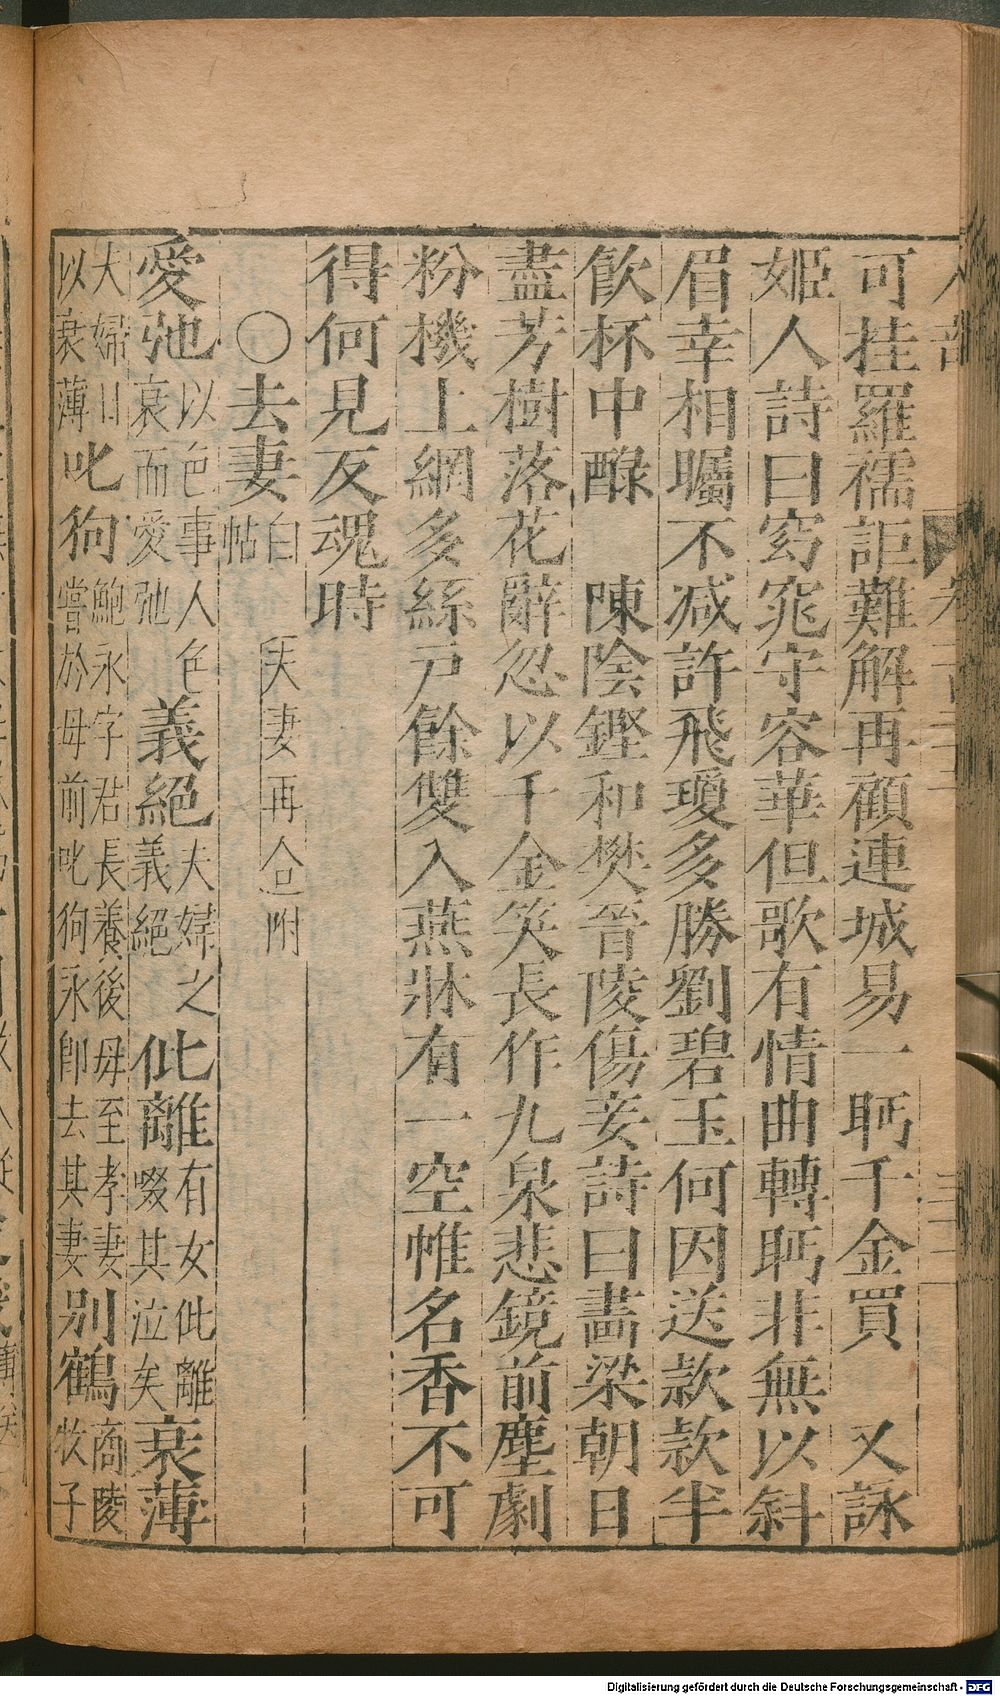 可挂羅襦詎難解再顧連城易一眄千金買　又詠
姬人詩曰窈窕守容華但歌有情曲轉眄非無以斜
眉幸相矚不减許飛瓊多勝劉碧玉何因送款款半
飲杯中醁　陳陰鏗和樊晉陵傷妾詩曰畫梁朝日
盡芳樹落花辭忽以千金笑長作九泉悲鏡前塵劇
粉機上網多絲戸餘雙入燕牀有一空帷名香不可
得何見反魂時
〇去妻白帖　夫妻再合附
愛弛以色事人色衰而愛弛義絕夫婦之義絕仳離有女仳離啜其泣矣衰薄
大婦日以衰薄叱狗鮑永字君長養後母至孝妻嘗於母前叱狗永卽去其妻別鶴商陵牧子
Digitalisierung gefördert durch die Deutsche Forschungsgemeinschaft - DFG